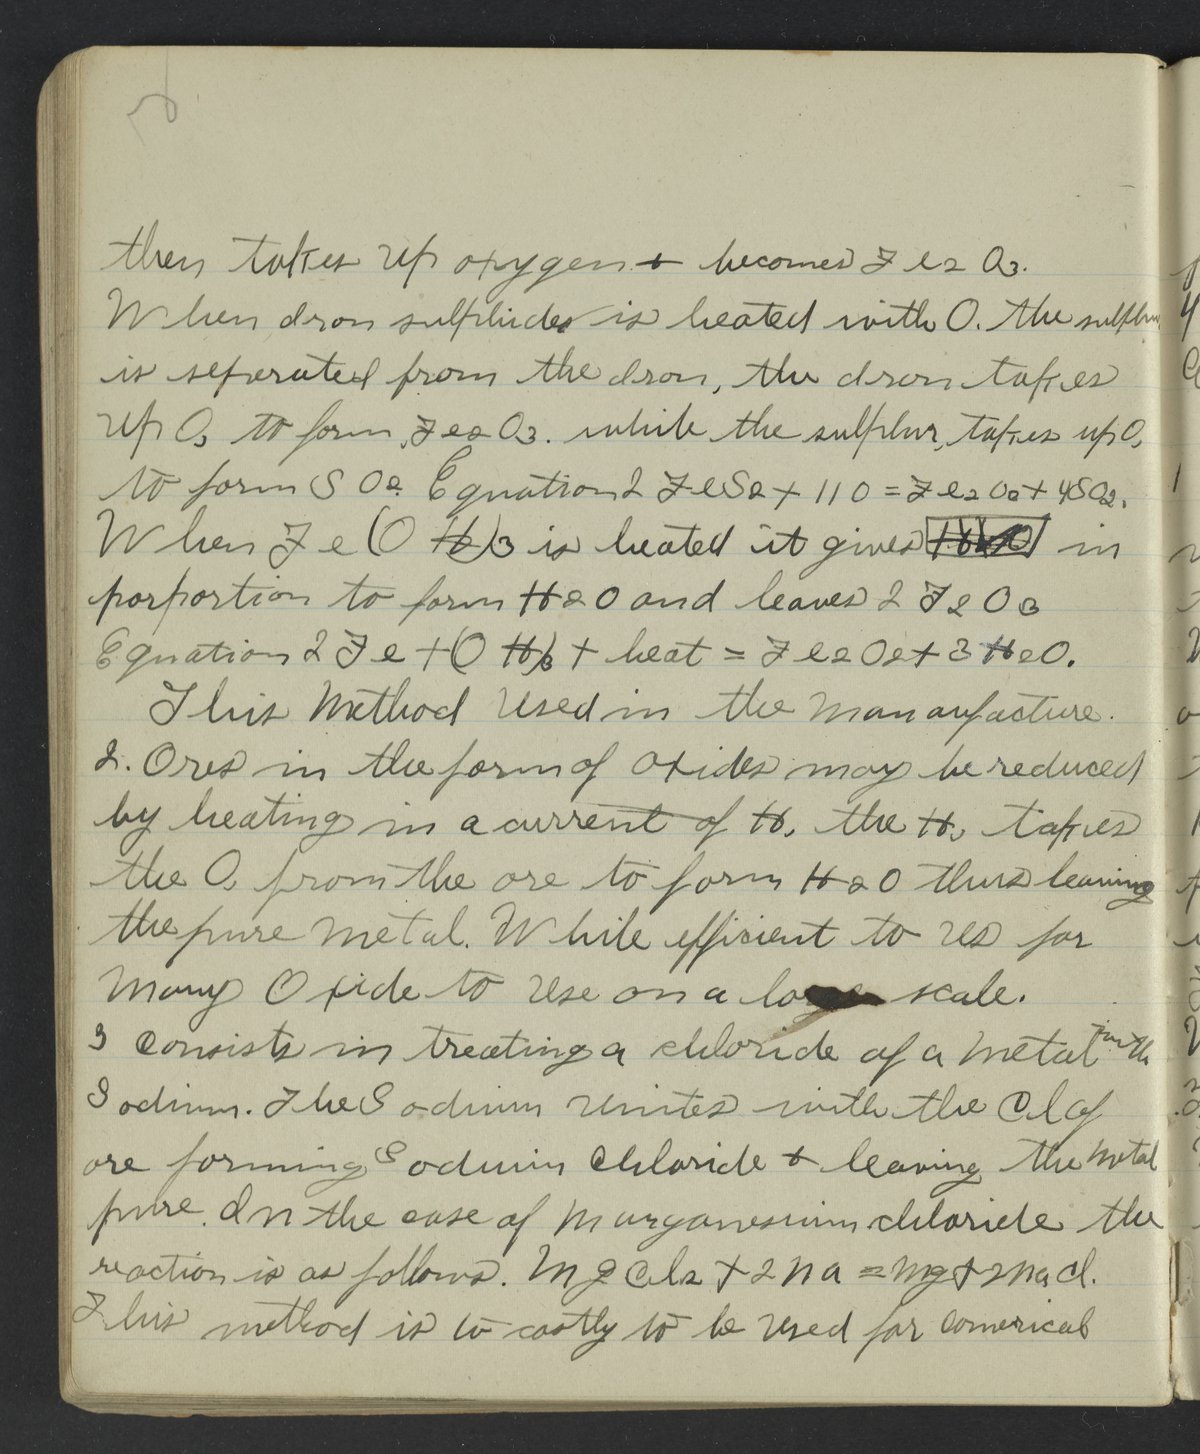 then takes up oxygen + becomes Fe2 O3.
When iron sulphides is heated with O. the sulphur
is seperated from the iron, the iron takes
up O, to form, Fe2 O3. while the sulphur, takes up O,
to form S O2. Equation 2 FeS2 + 11 O = Fe2 O2 + 4SO2.
When Fe (O H)3 is heated it gives in
porportion to form H2O and leaves 2 F2 O3
Equation 2 Fe + (O H)3 + heat = Fe2O2 + 3 H2O.
This Method used in the Mananfacture.
2. Ores in the form of oxides may be reduced
by heating in a current of H, the H, takes
the O, from the ore to form H2O thus leaving
the pure Metal. While efficient to us for
Many Oxide to use on a large scale.
3 Consists in treating a chloride of a Metal with
Sodium. The Sodium unites with the Cl of
ore forming Sodium Chloride + leaving the Metal
pure. In the case of Marganesium chloride the
reaction is as follows. Mg Cl2 + 2 Na = Mg + 2 Na Cl.
This method is to costly to be used for comerical